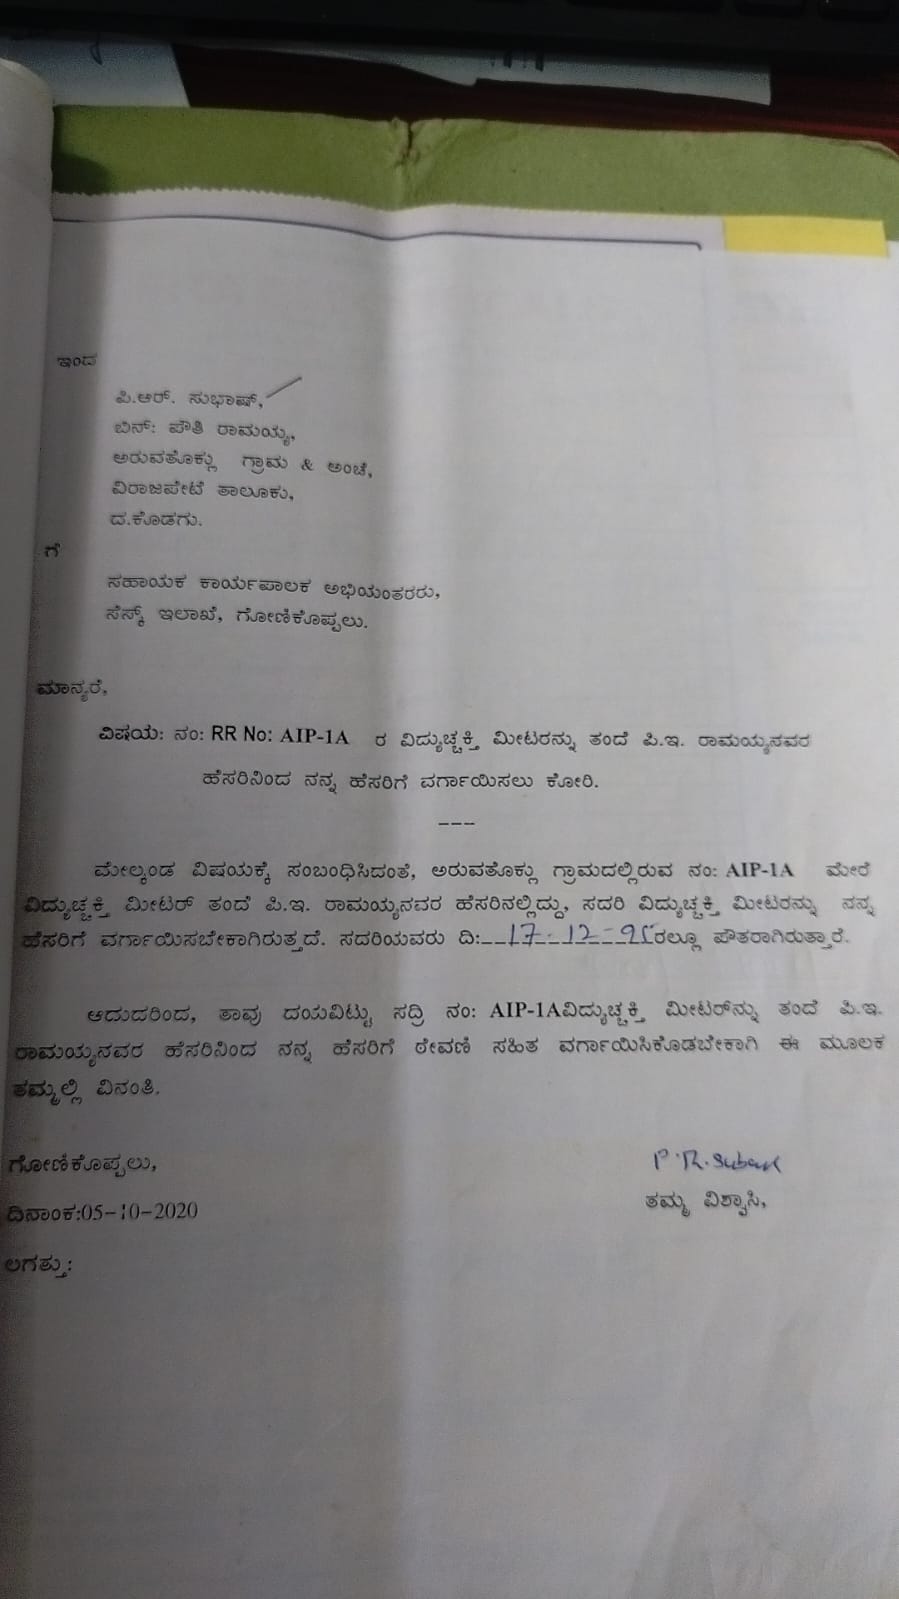 ಇಂದ
ಪಿ.ಆರ್. ಸುಭಾಷ್,
ಬಿನ್: ಪೌತಿ ರಾಮಯ್ಯ,
ಅರುವತೊಕ್ಲು ಗ್ರಾಮ & ಅಂಚೆ,
ವಿರಾಜಪೇಟೆ ತಾಲೂಕು,
ದ.ಕೊಡಗು.
ಗೆ
ಸಹಾಯಕ ಕಾರ್ಯಪಾಲಕ ಅಭಿಯಂತರರು,
ಸೆಸ್ಕ್ ಇಲಾಖೆ, ಗೋಣಿಕೊಪ್ಪಲು.
ಮಾನ್ಯರೆ,
ವಿಷಯ: ನಂ: RR No: AIP-1A ರ ವಿದ್ಯುಚ್ಚಕ್ತಿ ಮೀಟರನ್ನು ತಂದೆ ಪಿ.ಇ. ರಾಮಯ್ಯನವರ
ಹೆಸರಿನಿಂದ ನನ್ನ ಹೆಸರಿಗೆ ವರ್ಗಾಯಿಸಲು ಕೋರಿ.
---
ಮೇಲ್ಕಂಡ ವಿಷಯಕ್ಕೆ ಸಂಬಂಧಿಸಿದಂತೆ, ಅರುವತೊಕ್ಲು ಗ್ರಾಮದಲ್ಲಿರುವ ನಂ: AIP-1A ಮೇರೆ
ವಿದ್ಯುಚ್ಚಕ್ತಿ ಮೀಟರ್ ತಂದೆ ಪಿ.ಇ. ರಾಮಯ್ಯನವರ ಹೆಸರಿನಲ್ಲಿದ್ದು, ಸದರಿ ವಿದ್ಯುಚ್ಚಕ್ತಿ ಮೀಟರನ್ನು ನನ್ನ
ಹೆಸರಿಗೆ ವರ್ಗಾಯಿಸಬೇಕಾಗಿರುತ್ತದೆ. ಸದರಿಯವರು ದಿ: 17-12- ರಲ್ಲೂ ಪೌತರಾಗಿರುತ್ತಾರೆ.
ಆದುದರಿಂದ, ತಾವು ದಯವಿಟ್ಟು ಸದ್ರಿ ನಂ: AIP-1Aವಿದ್ಯುಚ್ಚಕ್ತಿ ಮೀಟರ್‌ನ್ನು ತಂದೆ ಪಿ.ಇ.
ರಾಮಯ್ಯನವರ ಹೆಸರಿನಿಂದ ನನ್ನ ಹೆಸರಿಗೆ ಠೇವಣಿ ಸಹಿತ ವರ್ಗಾಯಿಸಿಕೊಡಬೇಕಾಗಿ ಈ ಮೂಲಕ
ತಮ್ಮಲ್ಲಿ ವಿನಂತಿ.
ಗೋಣಿಕೊಪ್ಪಲು,
P.R.
ದಿನಾಂಕ:05-10-2020
ತಮ್ಮ ವಿಶ್ವಾಸಿ,
ಲಗತ್ತು: